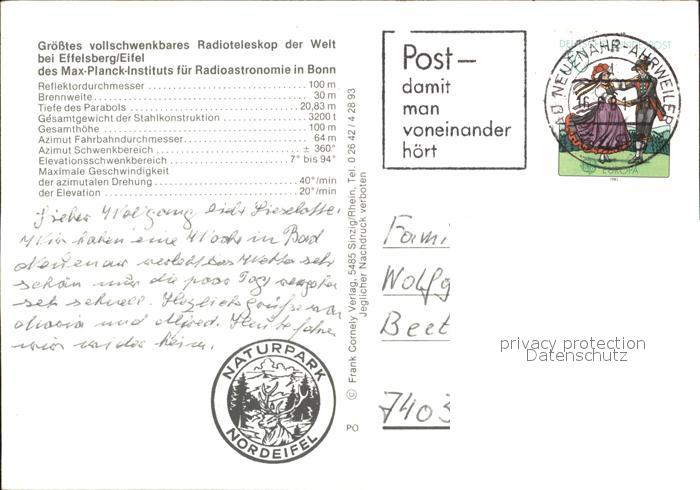 Größtes vollschwenkbares Radioteleskop der Welt
bei Effelsberg/Eifel
des Max-Planck-Instituts für Radioastronomie in Bonn
Reflektordurchmesser 100 m
Brennweite 30 m
Tiefe des Parabols 20,83 m
Gesamtgewicht der Stahlkonstruktion 3200 t
Gesamthöhe 100 m
Azimut Fahrbahndurchmesser 64 m
Azimut Schwenkbereich ± 360°
Elevationsschwenkbereich 7° bis 94°
Maximale Geschwindigkeit
der azimutalen Drehung 40°/min
der Elevation 20°/min
Lieber Wolfgang liebe Lieselotte,
Wir haben eine Woche in Bad
Neuenar das Wetter sehr
schön nur die paar Tage
schnell. Herzliche Grüße von
und Alfred. Heute fahren
wir wieder heim.
NATURPARK
NORDEIFEL
© Frank Cornely Verlag, 5485 Sinzig/Rhein, Tel. 0 26 42 / 4 28 93
Jeglicher Nachdruck verboten
PO
Post –
damit
man
voneinander
hört
BAD NEUENAHR-AHRWEILER
EUROPA
Fami
Wolfg
Beet
7403
privacy protection
Datenschutz